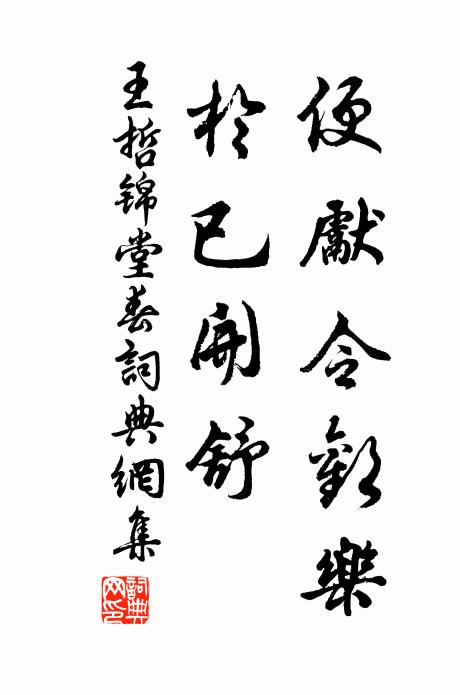 便獻令歡樂
於已開舒
王哲錦堂春詞典網集
詞典网印